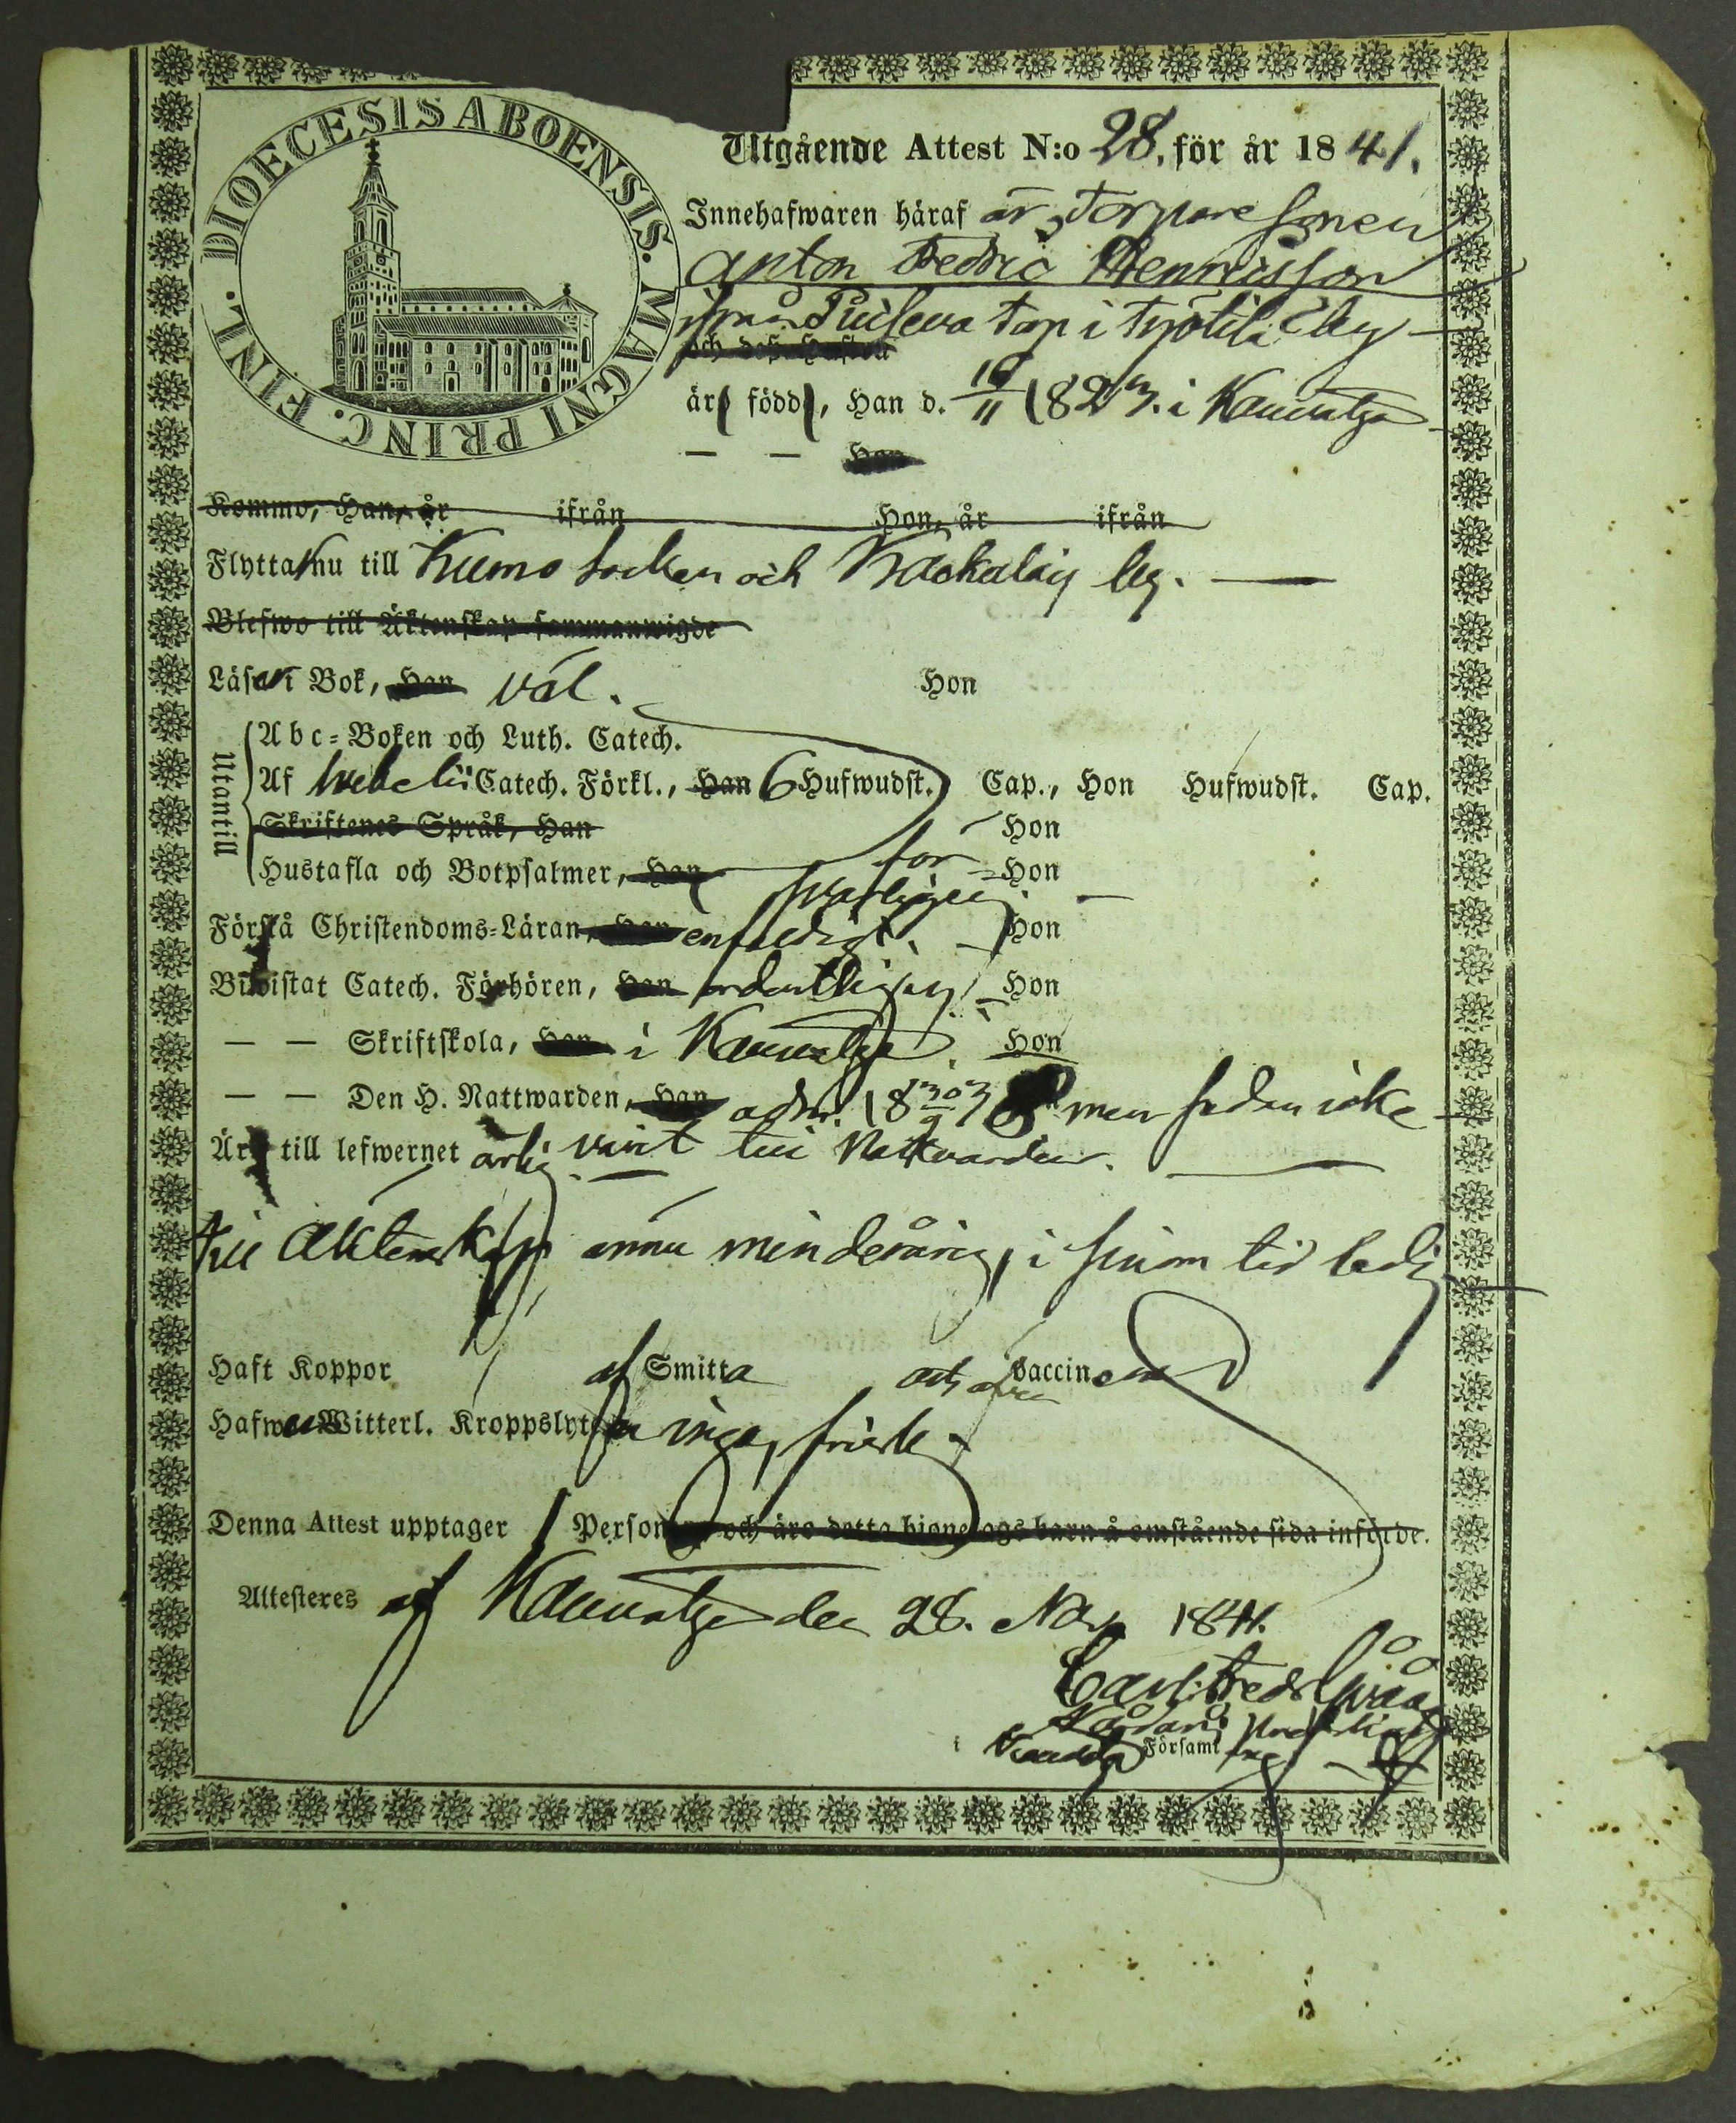 DIOECESIS ABOENSIS. MAGNI PRINC. FINL.
Utgående Attest N:o 28, för år 1841.
Innehafwaren häraf är Torpare Sonen
Anton Fedric Henricsson
ifrån torp i by
och dess Hustru
är född, Han d. 16/11 1823. i Kauvatza
— — Hon
Kommo, Han, år ifrån Hon, år ifrån
Flyttar nu till Kumo Socken och by.
Blefwo till Äktenskap sammanwigde
Läser i Bok, Han väl. Hon
Utantill
Abc-Boken och Luth. Catech.
Af Svebelii Catech. Förkl., Han 6 Hufwudst. Cap., Hon Hufwudst. Cap.
Skriftenes Språk, Han Hon
Hustafla och Botpsalmer, Han för- Hon
svarligen.
Förstå Christendoms-Läran, Han enfaldigt. Hon
Biwistat Catech. Förhören, Han ordentligen Hon
— — Skriftskola, Han i Kauvatza. Hon
— — Den H. Nattwarden, Han adm. men sedan icke
Är till lefwernet ärlig. varit till Nattvarden.
till Äktenskap ännu minderårig, i sinom tid ledig
Haft Koppor af Smitta och vaccinen
Hafwer Witterl. Kroppslyten inga, frisk.
Denna Attest upptager 1 Person och äro detta hjonelags barn å omstående sida införde.
Attesteres af Kauvatza den 28. Nov 1841.
Carl Fredr.
i Församl